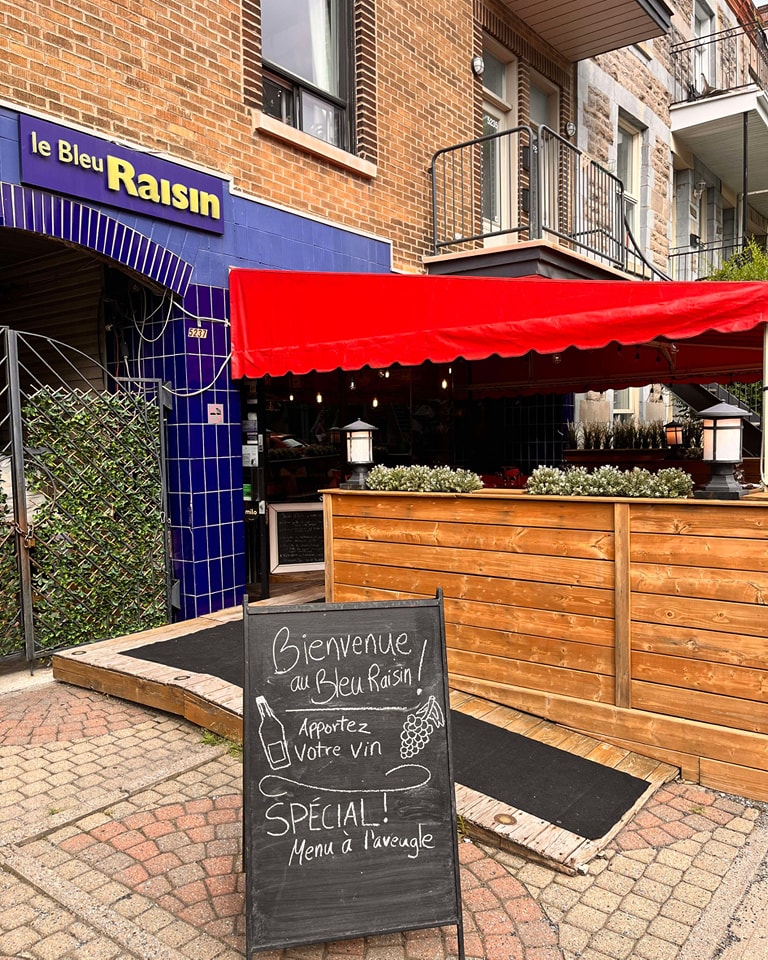 le Bleu Raisin
5237
milo
Bienvenue
au Bleu Raisin!
Apportez
Votre vin
SPÉCIAL!
Menu à l'aveugle